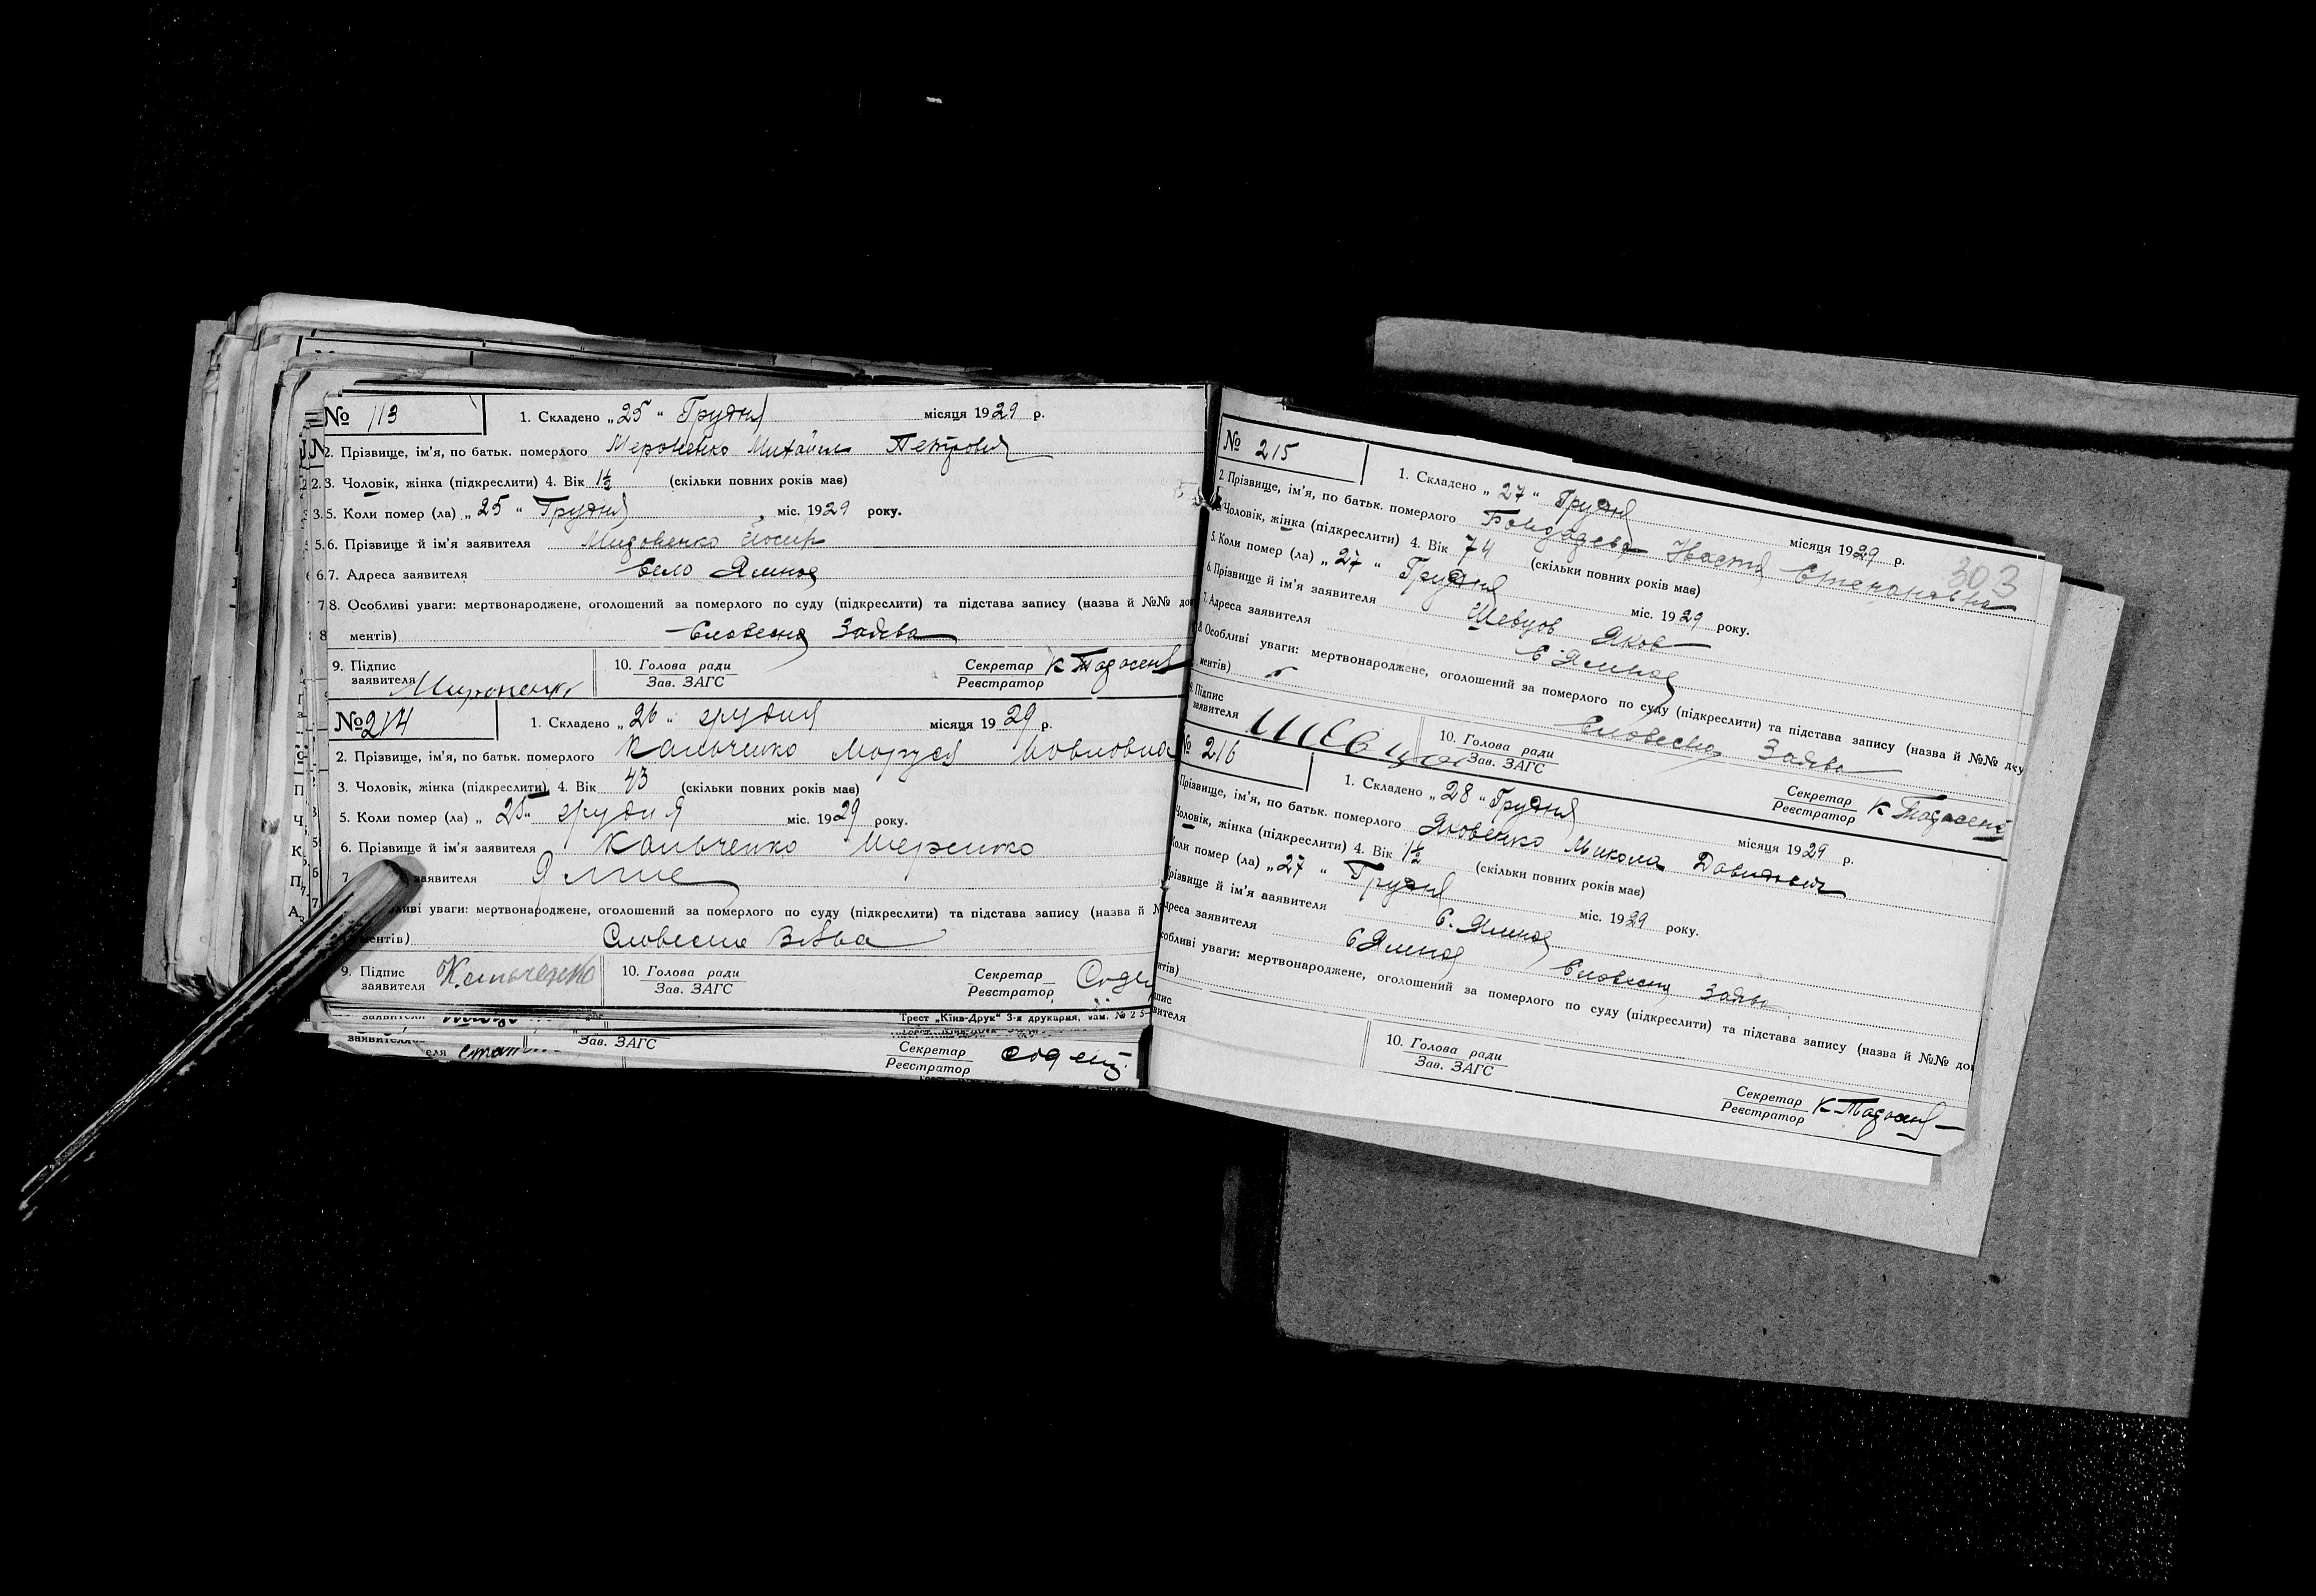 № 113
1. Складено „25“ Грудня місяця 1929 р.
2. Прізвище, ім'я, по батьк. померлого Мероненко Михайло Петрович
3. Чоловік, жінка (підкреслити) 4. Вік 1½ (скільки повних років має)
5. Коли помер (ла) „25“ Грудня міс. 1929 року.
6. Прізвище й ім'я заявителя Мироненко Йосип
7. Адреса заявителя Село Ямное
8. Особливі уваги: мертвонароджене, оголошений за померлого по суду (підкреслити) та підстава запису (назва й №№ док
ментів) Словесна Заява
9. Підпис заявителя Мироненко
10. Голова ради
Зав. ЗАГС
Секретар
Реєстратор
№ 214
1. Складено „26“ грудня місяця 1929 р.
2. Прізвище, ім'я, по батьк. померлого Кальченко Моруся
3. Чоловік, жінка (підкреслити) 4. Вік 43 (скільки повних років має)
5. Коли помер (ла) „25“ грудня міс. 1929 року.
6. Прізвище й ім'я заявителя Кальченко
7 заявителя Ямне
ливі уваги: мертвонароджене, оголошений за померлого по суду (підкреслити) та підстава запису (назва й №
ментів) Словесна
9. Підпис заявителя Кальченко
10. Голова ради
Зав. ЗАГС
Секретар
Реєстратор
заявителя
Трест „Київ-Друк“ 3-я друкарня, зам. № 25
Зав. ЗАГС
Секретар
Реєстратор
303
№ 215
1. Складено „27“ Грудня місяця 1929 р.
2. Прізвище, ім'я, по батьк. померлого Бондарева Настя Степановна
Чоловік, жінка (підкреслити) 4. Вік 74 (скільки повних років має)
5. Коли помер (ла) „27“ Грудня міс. 1929 року.
6. Прізвище й ім'я заявителя Шевцов Яков
7. Адреса заявителя С Ямное
8. Особливі уваги: мертвонароджене, оголошений за померлого по суду (підкреслити) та підстава запису (назва й №№ доку
ментів) Словесна Заява
9. Підпис заявителя Шевцов
10. Голова ради
Зав. ЗАГС
Секретар
Реєстратор
№ 216
1. Складено „28“ Грудня місяця 1929 р.
Прізвище, ім'я, по батьк. померлого Яковенко Микола Давидович
Чоловік, жінка (підкреслити) 4. Вік 1½ (скільки повних років має)
Коли помер (ла) „27“ Грудня міс. 1929 року.
різвище й ім'я заявителя С. Ямное
дреса заявителя С Ямное Словесна Заява
собливі уваги: мертвонароджене, оголошений за померлого по суду (підкреслити) та підстава запису (назва й №№ док
нтів)
дпис
вителя
10. Голова ради
Зав. ЗАГС
Секретар
Реєстратор